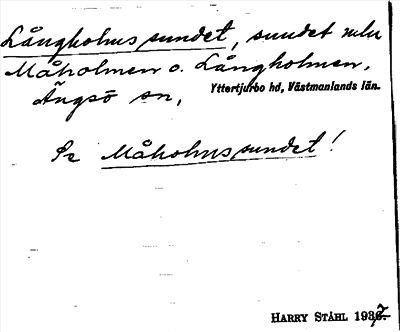 Långholmssundet, sundet mln
Måholmen o. Långholmen,
Ängsö sn, Yttertjurbo hd, Västmanlands län.
Se Måholmssundet!
HARRY STÅHL 1937.